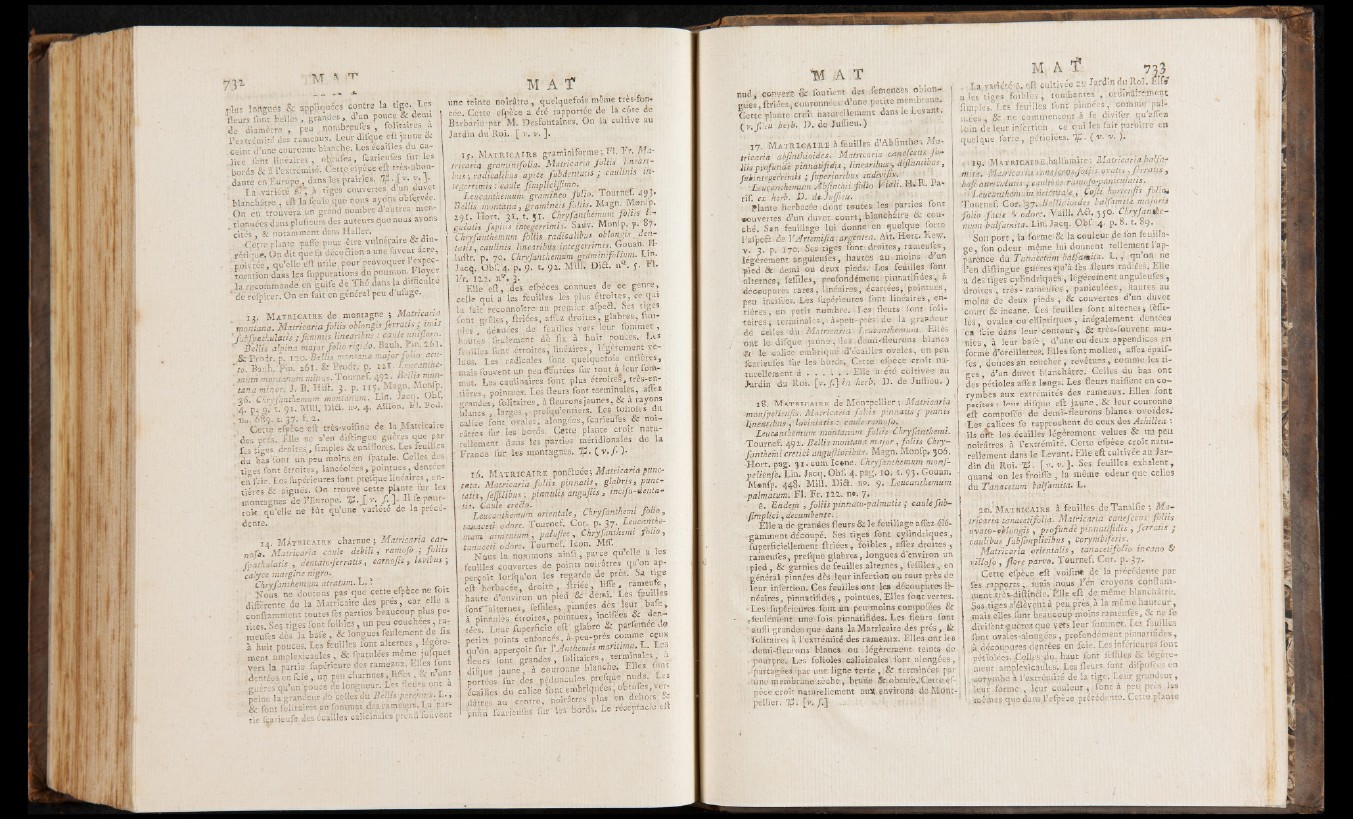 732
MAT
plus longues & appliquées contre la tige. Les
fleurs sont belles, grandes, d'un pouce & demi
de diamètre, peu nombreuses, solitaires à
l'extrémité des rameaux. Leur disque est jaune &
ceint d'une couronne blanche. Les écailles du ca-
lice sont linéaires, obtuses, scarieuses sur les
bords & à l'extrémité. Cette espèce est très-abon-
dante en Europe, dans les prairies. ♃. [v. v.].
La variété β, à tiges couvertes d'un duvet
blanchâtre, est la seule que nous ayons observée.
On en trouvera un grand nombre d'autres men-
tionnées dans plusieurs des auteurs que nous avons
cités, & notamment dens Haller.
Cette plante passe pour être vulnéraire & diu-
rétique. On dit que sa décoction a une saveur âcre,
poivrée, qu'elle est utile pour provoquer l'expec-
toration dans les suppurations du poumon. Floyer
la recommande en guise de Thé dans la difficulté
de respirer. On en fait en général peu d'usage.
13. MATRICAIRE de montagne; Matricaria
montana. Matricaria foliis oblongis serratis; imis
subspathulatis; summis linearibus: caule unifloro.
Bellis alpina major folio rigido. Bauh. Pin. 261.
& Prodr. p. 120. Bellis montana major folio acu-
to. Bauh. Pin. 261. & Prodr. p. 121. Leucanthe-
mum montanum minus. Tournef. 492. Bellis mon-
tana minor. J. B. Hist. 3. p. 115. Magn. Monsp.
36. Chrysanthemum montanum. Lin. Jacq. Obs.
4. p. 9. t. 91. Mill. Dict. no. 4. Allion. Fl. Ped.
no. 689. t. 37. f. 2.
Cette espèce est très-voisine de la Matricaire
des prés. Elle ne s'en distingue guères que par
ses tiges droites, simples & uniflores. Les feuilles
du bas sont un peu moins en spatule. Celles des
tiges sont étroites, lancéolées, pointues, dentées
en scie. Les supérieures sont presque linéaires, en-
tières & aiguës. On trouve cette plante sur les
montagnes de l'Europe. ♃. [v. s.]. Il se pour-
roit qu'elle ne fût qu'une variété de la précé-
dente.
14. MATRICAIRE charnue; Matricaria car-
nosa. Matricaria caule debili, ramoso; foliis
spathulatis, dentato-serratis, carnosis, lævibus;
calyce margine nigro.
Chrysanthemum atratum. L.?
Nous ne doutons pas que cette espèce ne soit
différente de la Matricaire des prés, car elle a
constamment toutes ses parties beaucoup plus pe-
tites. Ses tiges sont foibles, un peu couchées, ra-
meuses dès la base, & longues seulement de six
à huit pouces. Les feuilles sont alternes, légère-
ment amplexicaules, & spatulées même jusques
vers la partie supérieure des rameaux. Elles sont
dentées en scie, un peu charnues, lisses, & n'ont
guères qu'un pouce de longueur. Les fleurs ont à
peine la grandeur de celles du Bellis perennis. L.,
& sont solitaires au sommet des rameaux. La par-
tie scarieuse des écailles calicinales prend souvent
MAT
une teinte noirâtre, quelquefois même très-fon-
cée. Cette espèce a été rapportée de la côte de
Barbarie par M. Desfontaines. On la cultive au
Jardin du Roi. [v. v.].
15. MATRICAIRE graminiforme; Fl. Fr. Ma-
tricaria graminifolia. Matricaria foliis lineari-
bus; radicalibus apice subdentatis; caulinis in-
tegerrimis: caule simplicissimo.
Leucanthemum gramineo folio. Tournef. 493.
Bellis montana, gramineis foliis. Magn. Monsp.
291. Hort. 31. t. 31. Chrysanthemum foliis li-
gulatis sæpius integerrimis. Sauv. Monsp. p. 87.
Chrysanthemum foliis radicalibus oblongis den-
tatis, caulinis linearibus integerrimis. Gouan. Il-
lustr. p. 70. Chrysanthemum graminifolium. Lin.
Jacq. Obs. 4. p. 9. t. 92. Mill. Dict. no. 5. Fl.
Fr. 122. no. 3.
Elle est, des espèces connues de ce genre,
celle qui a les feuilles les plus étroites, ce qui
la fait reconnoître au premier aspect. Ses tiges
sont grêles, striées, assez droites, glabres, sim-
ples, dénuées de feuilles vers leur sommet,
hautes seulement de six à huit pouces. Les
feuilles sont étroites, linéaires, légèrement ve-
lues. Les radicales sont quelquefois entières,
mais souvent un peu dentées sur tout à leur som-
met. Les caulinaires sont plus étroites, très-en-
tières, pointues. Les fleurs sont terminales, assez
grandes, solitaires, à fleurons jaunes, & à rayons
blancs, larges, presqu'entiers. Les folioles du
calice sont ovales, alongées, scarieuses & noi-
râtres sur les bords. Cette plante croît natu-
rellement dans les parties méridionales de la
France sur les montagnes. ♃. (v. s.).
16. MATRICAIRE ponctuée; Matricaria punc-
tata. Matricaria foliis pinnatis, glabris, punc-
tatis, sessilibus; pinnulis angustis, inciso-denta-
tis. Caule erecto.
Leucanthemum orientale, Chrysanthemi folio,
tanaceti odore. Tournef. Cor. p. 37. Leucanthe-
mum armenium, palustre, Chrysanthemi folio,
tanaceti odore. Tournef. Icon. Mss.
Nous la nommons ainsi, parce qu'elle a les
feuilles couvertes de points noirâtres qu'on ap-
perçoit lorsqu'on les regarde de près. Sa tige
est herbacée, droite, striée, lisse, rameuse,
haute d'environ un pied & demi. Les feuilles
sont alternes, sessiles, pinnées dès leur base,
à pinnules étroites, pointues, incisées & den-
tées. Leur superficie est glabre & parsemée de
petits points enfoncés, à-peu-près comme ceux
qu'on apperçoit sur l'Anthemis maritima. L. Les
fleurs sont grandes, solitaires, terminales, à
disque jaune, à couronne blanche. Elles sont
portées sur des péduncules presque nuds. Les
écailles du calice sont embriquées, obtuses, ver-
dâtres au centre, noirâtres plus en dehors, &
enfin scarieuses sur les bords. Le réceptacle est
MAT
nud, convexe & soutient des semences oblon-
gues, striées, couronnées d'une petite membrane.
Cette plante croît naturellement dans le Levant.
(v. s. in herb. D. de Jussieu.)
17. MATRICAIRE à feuilles d'Absinthe; Ma-
tricaria absinthioides. Matricaria canescens, fo-
liis profunde pinnatifidis, linearibus, distantibus,
subintegerrimis; superioribus indivisis.
Leucanthemum Absinthii folio. Vaill. H. R. Pa-
ris. ex herb. D. de Jussieu.
Plante herbacée dont toutes les parties sont
couvertes d'un duvet court, blanchâtre & cou-
ché. Son feuillage lui donne en quelque sorte
l'aspect de l'Artemisia argentea. Ait. Hort. Kew.
v. 3. p. 170. Ses tiges sont droites, rameuses,
légèrement anguleuses, hautes au moins d'un
pied & demi ou deux pieds. Les feuilles sont
alternes, sessiles, profondément pinnatifides, à
découpures rares, linéaires, écartées, pointues,
peu incisées. Les supérieures sont linéaires, en-
tières, en petit nombre. Les fleurs sont soli-
taires, terminales, à-peu-près de la grandeur
de celles du Matricaria Leucanthemum. Elles
ont le disque jaune, les demi-fleurons blancs
& le calice embriqué d'écailles ovales, un peu
scarieuses sur les bords. Cette espèce croît na-
turellement à . . . . . . Elle a été cultivée au
Jardin du Roi. [v. s.] in herb. D. de Jussieu.)
18. MATRICAIRE de Montpellier; Matricaria
monspeliensis. Matricaria foliis pinnatis; pinnis
linearibus, laciniatis: caule ramoso.
Leucanthemum montanum foliis Chrysanthemi.
Tournef. 492. Bellis montana major, foliis Chry-
santhemi cretici angustioribus. Magn. Monsp. 306.
Hort. pag. 31. cum Icone. Chrysanthemum monsp-
peliense. Lin. Jacq. Obs. 4. pag. 10. t. 93. Gouan.
Monsp. 448. Mill. Dict. no. 9. Leucanthemum
palmatum. Fl. Fr. 122. no. 7.
β. Eadem; foliis pinnato-palmatis; caule sub-
simplici, decumbente.
Elle a de grandes fleurs & le feuillage assez élé-
gamment découpé. Ses tiges sont cylindriques,
superficiellement striées, foibles, assez droites,
rameuses, presque glabres, longues d'environ un
pied, & garnies de feuilles alternes, sessiles, en
général pinnées dès leur insertion ou tout près de
leur insertion. Ces feuilles ont les découpures li-
néaires, pinnatifides, pointues. Elles sont vertes.
Les supérieures sont un peu moins composées &
seulement une fois pinnatifides. Les fleurs sont
aussi grandes que dans la Matricaire des prés, &
solitaires à l'extrémité des rameaux. Elles ont les
demi-fleurons blancs ou légèrement teints de
pourpre. Les folioles calicinales sont alongées,
partagées par une ligne verte, & terminées par
une membrane sèche, brune & obtuse. Cette es-
pèce croît naturellement aux environs de Mont-
pellier. ♃. [v. s.]
MAT
733
La variété β. est cultivée au Jardin du Roi. Elle
a les tiges foibles, tombantes, ordinairement
simples. Les feuilles sont pinnées, comme pal-
mées, & ne commencent à se diviser qu'assez
loin de leur insertion, ce qui les fait paroître en
quelque sorte, pétiolées. ♃. (v. v.).
19. MATRICAIRE balsamite; Matricaria balsa-
mita. Matricaria foliis ovatis, serratis,
basi auriculatis; caulibus ramoso-paniculatis.
Leucanthemum orientale, Costi hortensis folio.
Tournef. Cor. 37. Bellidioides balsamitæ majoris
folio, facie & odore. Vaill. Act. 350. Chrysanthe-
num balsamita. Lin. Jacq. Obs. 4. p. 8. t. 89.
Son port, la forme & la couleur de son feuilla-
ge, son odeur même lui donnent tellement l'ap-
parence du Tanacetum balsamita. L., qu'on ne
l'en distingue guères qu'à ses fleurs radiées. Elle
a des tiges cylindriques, légèrement anguleuses,
droites, très-rameuses, paniculées, hautes au
moins de deux pieds, & couvertes d'un duvet
court & incane. Les feuilles sont alternes, sessi-
les, ovales ou elliptiques, inégalement dentées
en scie dans leur contour, & très-souvent mu-
nies, à leur base, d'une ou deux appendices en
forme d'oreillettes. Elles sont molles, assez épais-
ses, douces au toucher, revêtues, comme les ti-
ges, d'un duvet blanchâtre. Celles du bas ont
des pétioles assez longs. Les fleurs naissent en co-
rymbes aux extrémités des rameaux. Elles sont
petites: leur disque est jaune, & leur couronne
est composée de demi-fleurons blancs ovoïdes.
Les calices se rapprochent de ceux des Achillea:
ils ont les écailles légèrement velues & un peu
noirâtres à l'extrémité. Cette espèce croît natu-
rellement dans le Levant. Elle est cultivée au Jar-
din du Roi. ♃. [v. v.]. Ses feuilles exhalent,
quand on les froisse, la même odeur que celles
du Tanacetum balsamita. L.
20. MATRICAIRE à feuilles de Tanaisie; Ma-
tricaria tanacetifolia. Matricaria canescens foliis
ovato-oblongis, profunde pinnatifidis, serratis;
caulibus subsimplicibus, corymbiferis.
Matricaria orientalis, tanacetifolio incano &
villoso, flore parvo. Tournef. Cor. p. 37.
Cette espèce est voisine de la précédente par
ses rapports, mais nous l'en croyons constam-
ment très-distincte. Elle est de même blanchâtre.
Ses tiges s'élèvent à peu près à la même hauteur,
mais elles sont beaucoup moins rameuses, & ne se
divisent guères que vers leur sommet. Les feuilles
sont ovales-alongées, profondément pinnatifides,
à découpures dentées en scie. Les inférieures sont
pétiolées. Celles du haut sont sessiles & légère-
ment amplexicaules. Les fleurs sont disposées en
corymbe à l'extrémité de la tige. Leur grandeur,
leur forme, leur couleur, sont à peu près les
mêmes que dans l'espèce précédente. Cette plante